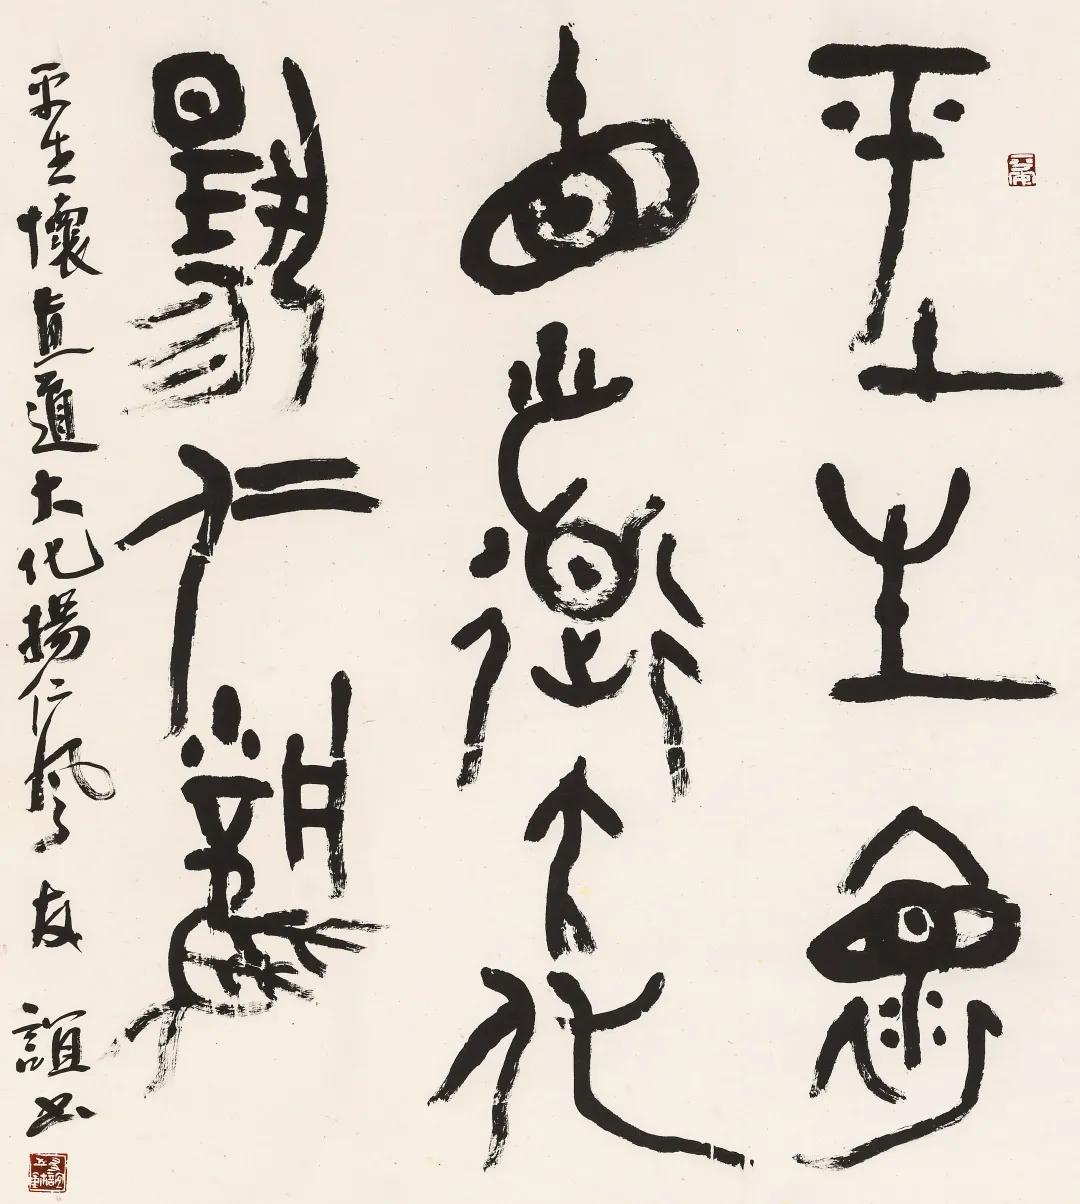 平生懷
直道大化
揚仁風
平生懷直道大化揚仁風 友誼书